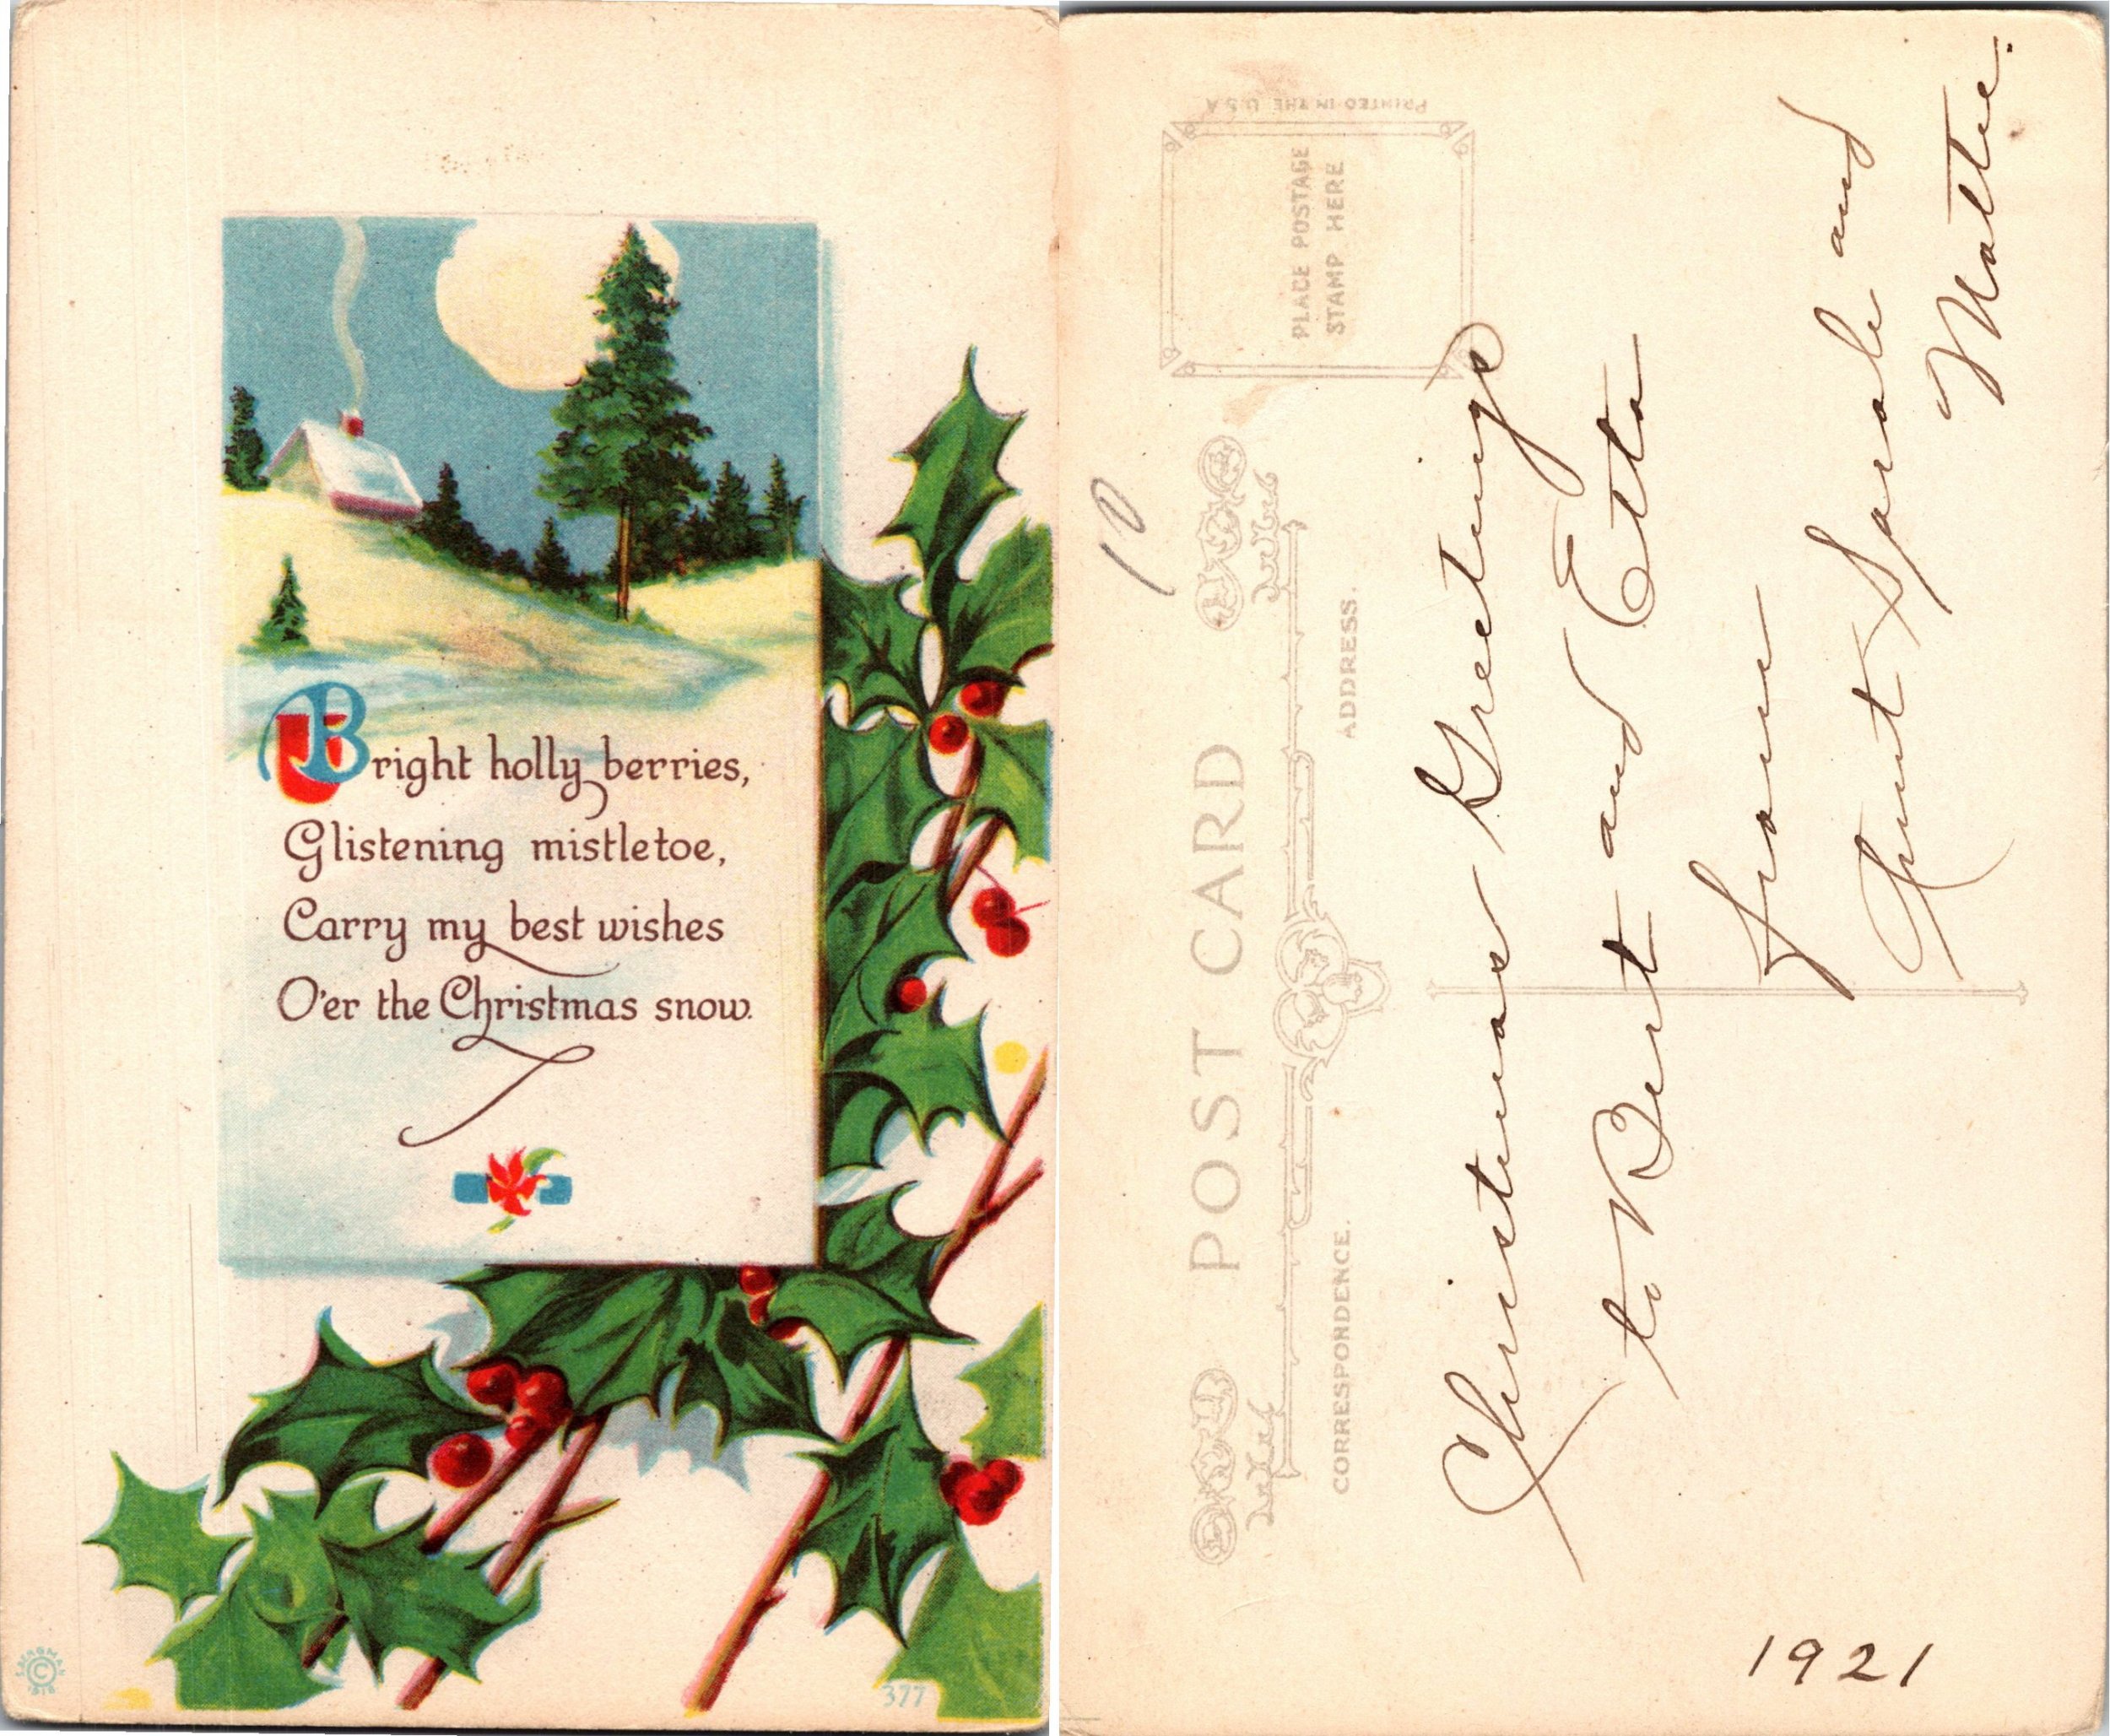 Bright holly berries,
Glistening mistletoe,
Carry my best wishes
O'er the Christmas snow.
S. BERGMAN
©
377
PRINTED IN THE U.S.A
PLACE POSTAGE
STAMP HERE
10
POST CARD
CORRESPONDENCE.
ADDRESS.
Christmas Greetings
to Bert and Etta
from
Aunt Sarah and
Mattie.
1921